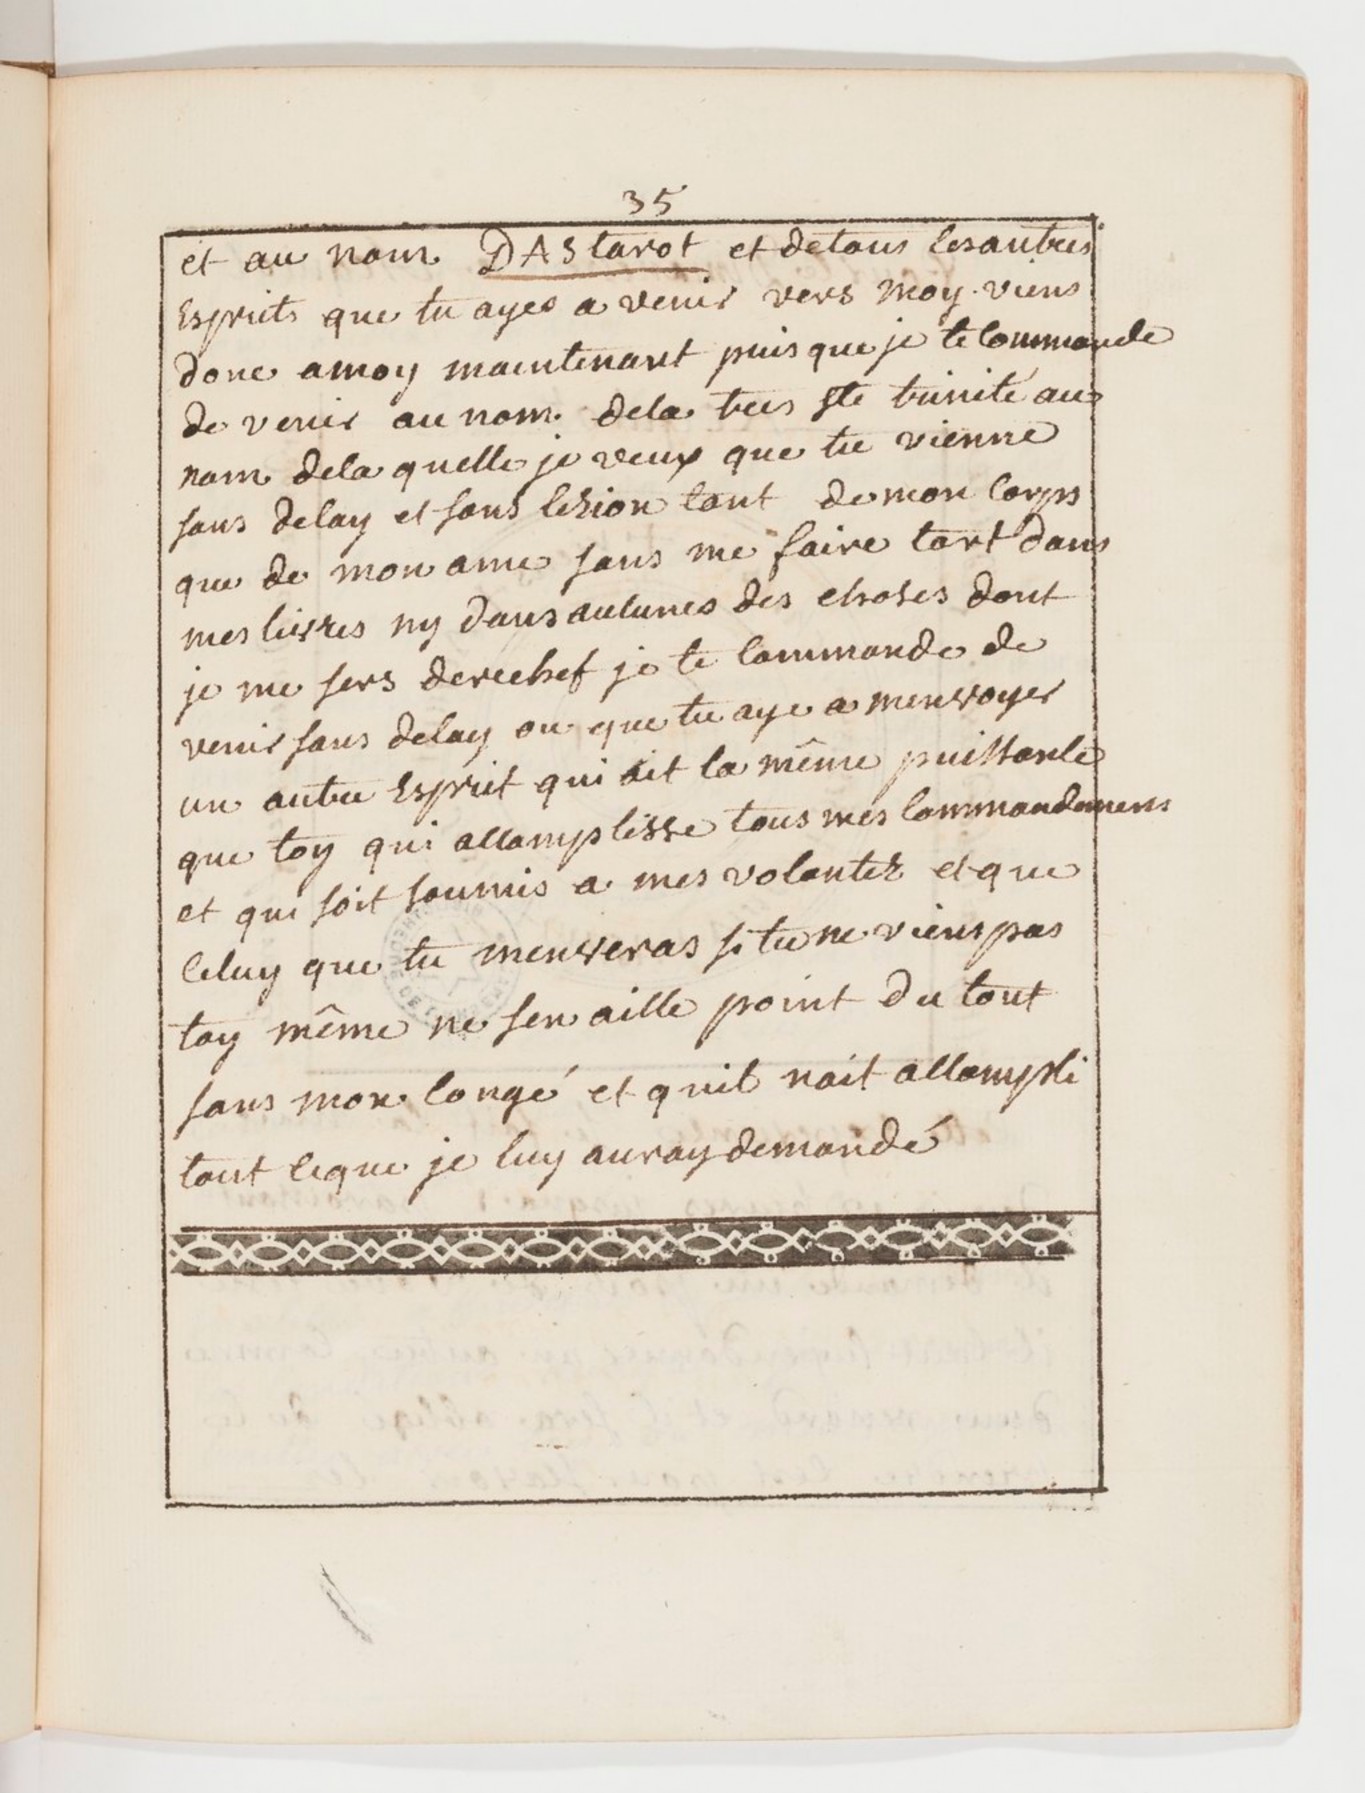 35
et au nom DAStarot et detous lesautres
Esprits que tu ayes a venir vers moy viens
donc amoy maintenant puis que je te commande
de venir au nom dela tres ste trinité au
nom dela quelle je veux que tu vienne
sans delay et sans lezion tant de mon corps
que de mon ame sans me faire tort dans
mes livres ny dans aucunes des choses dont
je me sers derechef je te commande de
venir sans delay ou que tu aye a menvoyer
un autre Esprit qui ait la même puissance
que toy qui accomplisse tous mes commandemens
et qui soit soumis a mes volontez et que
celuy que tu menveras si tu ne viens pas
toy même ne sen aille point du tout
sans mon congé et quil nait accompli
tout ceque je luy auray demandé